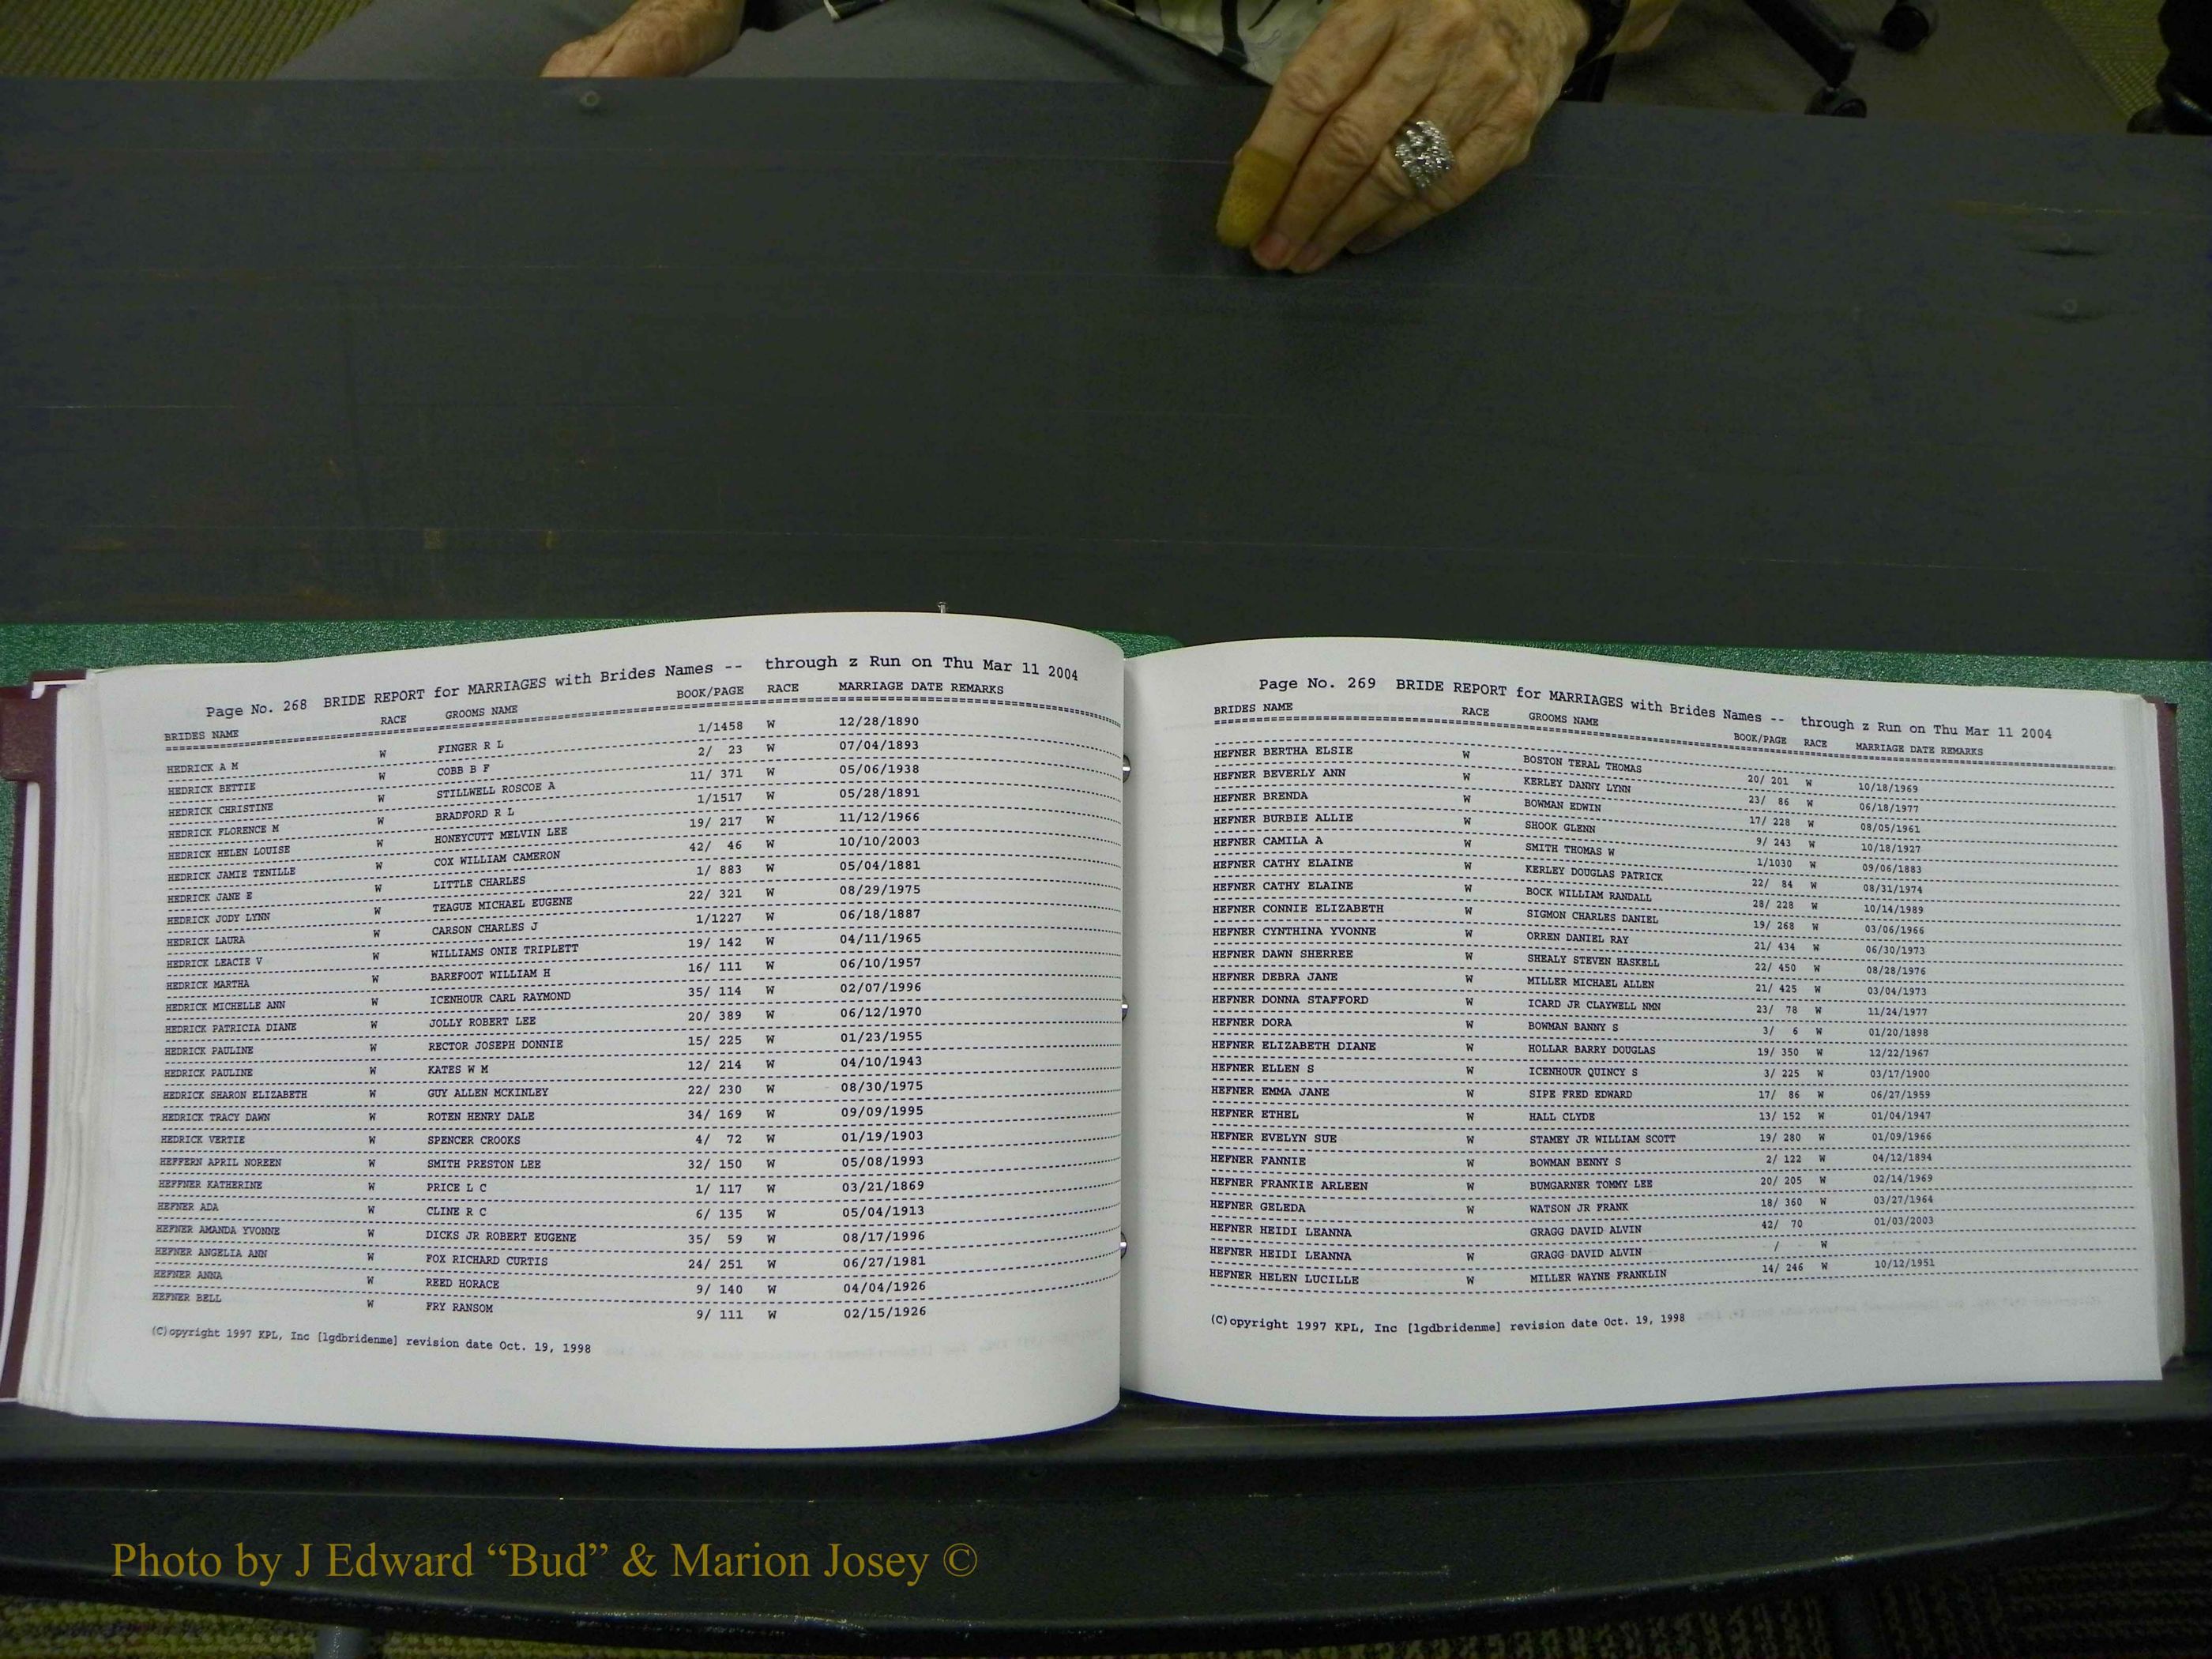 Page No. 268 BRIDE REPORT for MARRIAGES with Brides Names -- through z Run on Thu Mar 11 2004
BRIDES NAME RACE GROOMS NAME BOOK/PAGE RACE MARRIAGE DATE REMARKS
HEDRICK A M W FINGER R L 1/1458 W 12/28/1890
HEDRICK BETTIE W COBB B F 2/ 23 W 07/04/1893
HEDRICK CHRISTINE W STILLWELL ROSCOE A 11/ 371 W 05/06/1938
HEDRICK FLORENCE M W BRADFORD R L 1/1517 W 05/28/1891
HEDRICK HELEN LOUISE W HONEYCUTT MELVIN LEE 19/ 217 W 11/12/1966
HEDRICK JAMIE TENILLE W COX WILLIAM CAMERON 42/ 46 W 10/10/2003
HEDRICK JANE E W LITTLE CHARLES 1/ 883 W 05/04/1881
HEDRICK JODY LYNN W TEAGUE MICHAEL EUGENE 22/ 321 W 08/29/1975
HEDRICK LAURA W CARSON CHARLES J 1/1227 W 06/18/1887
HEDRICK LEACIE V W WILLIAMS ONIE TRIPLETT 19/ 142 W 04/11/1965
HEDRICK MARTHA W BAREFOOT WILLIAM H 16/ 111 W 06/10/1957
HEDRICK MICHELLE ANN W ICENHOUR CARL RAYMOND 35/ 114 W 02/07/1996
HEDRICK PATRICIA DIANE W JOLLY ROBERT LEE 20/ 389 W 06/12/1970
HEDRICK PAULINE W RECTOR JOSEPH DONNIE 15/ 225 W 01/23/1955
HEDRICK PAULINE W KATES W M 12/ 214 W 04/10/1943
HEDRICK SHARON ELIZABETH W GUY ALLEN MCKINLEY 22/ 230 W 08/30/1975
HEDRICK TRACY DAWN W ROTEN HENRY DALE 34/ 169 W 09/09/1995
HEDRICK VERTIE W SPENCER CROOKS 4/ 72 W 01/19/1903
HEFFERN APRIL NOREEN W SMITH PRESTON LEE 32/ 150 W 05/08/1993
HEFFNER KATHERINE W PRICE L C 1/ 117 W 03/21/1869
HEFNER ADA W CLINE R C 6/ 135 W 05/04/1913
HEFNER AMANDA YVONNE W DICKS JR ROBERT EUGENE 35/ 59 W 08/17/1996
HEFNER ANGELIA ANN W FOX RICHARD CURTIS 24/ 251 W 06/27/1981
HEFNER ANNA W REED HORACE 9/ 140 W 04/04/1926
HEFNER BELL W FRY RANSOM 9/ 111 W 02/15/1926
(C)opyright 1997 KPL, Inc [lgdbridenme] revision date Oct. 19, 1998
Page No. 269 BRIDE REPORT for MARRIAGES with Brides Names -- through z Run on Thu Mar 11 2004
BRIDES NAME RACE GROOMS NAME BOOK/PAGE RACE MARRIAGE DATE REMARKS
HEFNER BERTHA ELSIE W BOSTON TERAL THOMAS 20/ 201 W 10/18/1969
HEFNER BEVERLY ANN W KERLEY DANNY LYNN 23/ 86 W 06/18/1977
HEFNER BRENDA W BOWMAN EDWIN 17/ 228 W 08/05/1961
HEFNER BURBIE ALLIE W SHOOK GLENN 9/ 243 W 10/18/1927
HEFNER CAMILA A W SMITH THOMAS W 1/1030 W 09/06/1883
HEFNER CATHY ELAINE W KERLEY DOUGLAS PATRICK 22/ 84 W 08/31/1974
HEFNER CATHY ELAINE W BOCK WILLIAM RANDALL 28/ 228 W 10/14/1989
HEFNER CONNIE ELIZABETH W SIGMON CHARLES DANIEL 19/ 268 W 03/06/1966
HEFNER CYNTHINA YVONNE W ORREN DANIEL RAY 21/ 434 W 06/30/1973
HEFNER DAWN SHERREE W SHEALY STEVEN HASKELL 22/ 450 W 08/28/1976
HEFNER DEBRA JANE W MILLER MICHAEL ALLEN 21/ 425 W 03/04/1973
HEFNER DONNA STAFFORD W ICARD JR CLAYWELL NMN 23/ 78 W 11/24/1977
HEFNER DORA W BOWMAN BANNY S 3/ 6 W 01/20/1898
HEFNER ELIZABETH DIANE W HOLLAR BARRY DOUGLAS 19/ 350 W 12/22/1967
HEFNER ELLEN S W ICENHOUR QUINCY S 3/ 225 W 03/17/1900
HEFNER EMMA JANE W SIPE FRED EDWARD 17/ 86 W 06/27/1959
HEFNER ETHEL W HALL CLYDE 13/ 152 W 01/04/1947
HEFNER EVELYN SUE W STAMEY JR WILLIAM SCOTT 19/ 280 W 01/09/1966
HEFNER FANNIE W BOWMAN BENNY S 2/ 122 W 04/12/1894
HEFNER FRANKIE ARLEEN W BUMGARNER TOMMY LEE 20/ 205 W 02/14/1969
HEFNER GELEDA W WATSON JR FRANK 18/ 360 W 03/27/1964
HEFNER HEIDI LEANNA GRAGG DAVID ALVIN 42/ 70 01/03/2003
HEFNER HEIDI LEANNA W GRAGG DAVID ALVIN / W
HEFNER HELEN LUCILLE W MILLER WAYNE FRANKLIN 14/ 246 W 10/12/1951
(C)opyright 1997 KPL, Inc [lgdbridenme] revision date Oct. 19, 1998
Photo by J Edward “Bud” & Marion Josey ©